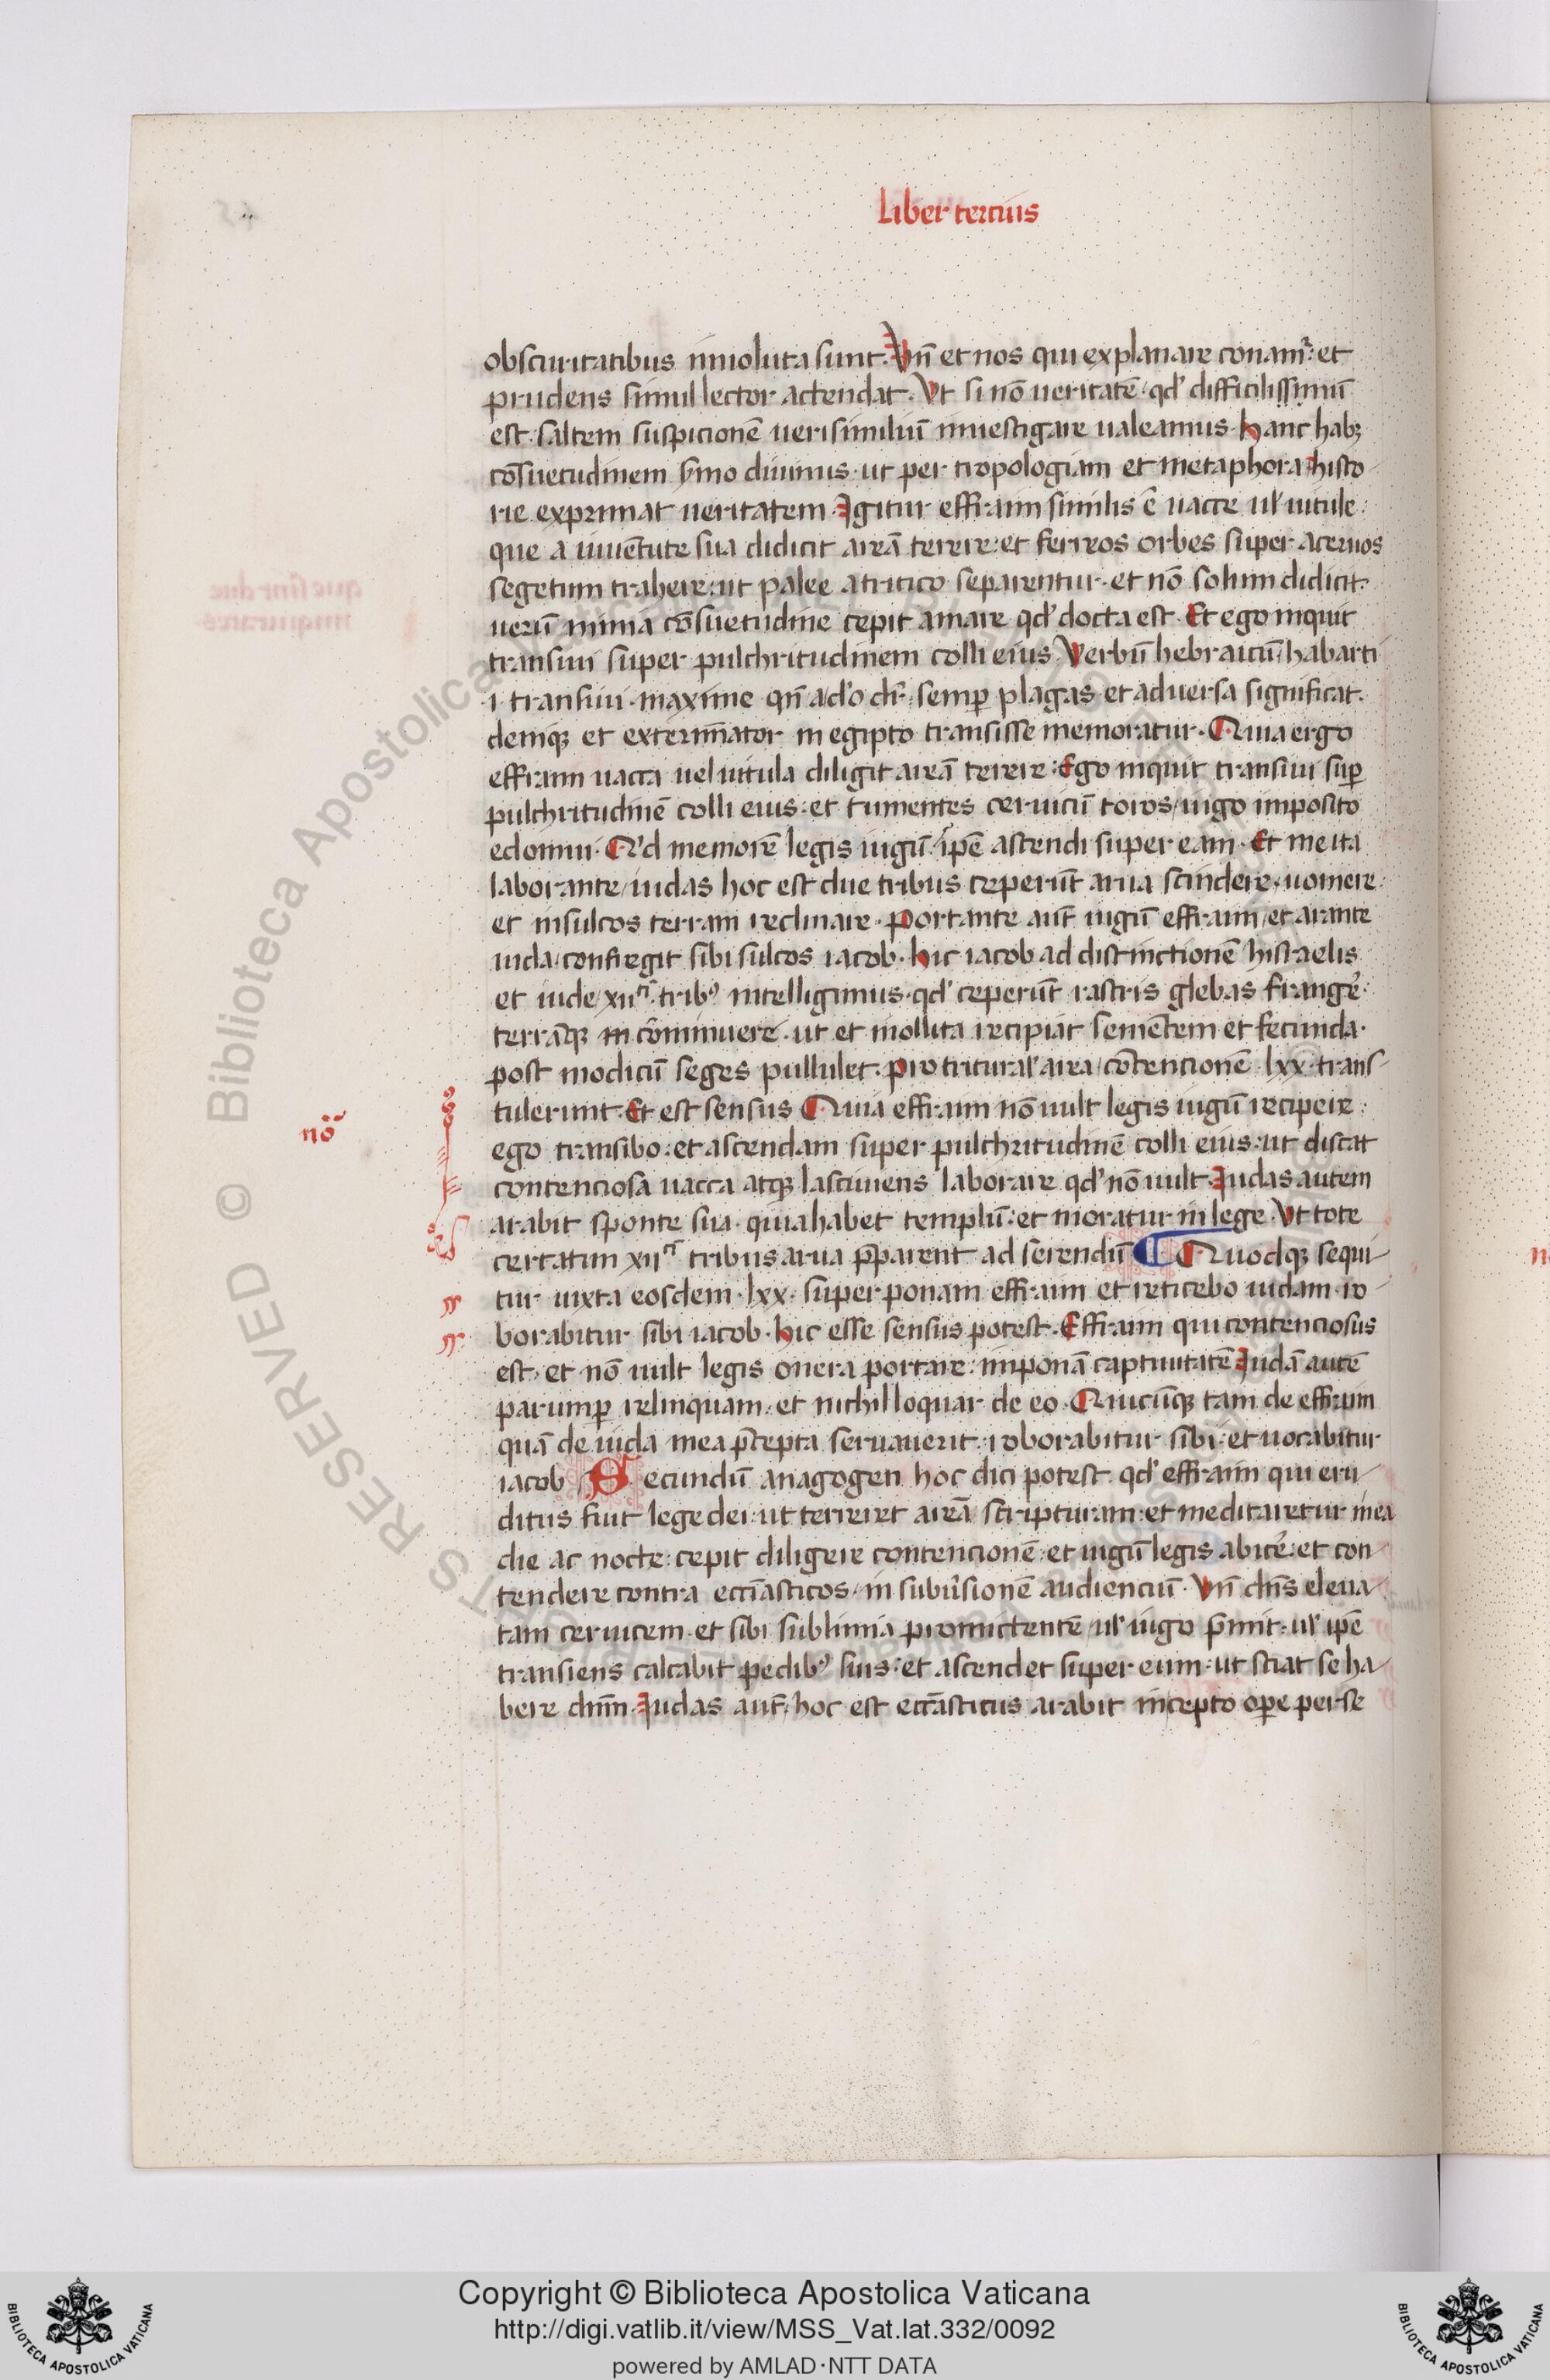 Liber tercius
obscuritatibus inuoluta sunt. Vñ et nos qui explanare conamr̃: et
prudens simul lector actendat. Vt si nō ueritatē qd' difficilissimū
est. saltem suspicionē uerisimiliū inuestigare ualeamus. Hanc habꝫ
cōsuetudinem sꝫmo diuinus. ut per tropologiam et metaphorā histo
rie exprimat ueritatem. Igitur effraim similis ē uacce ul' uitule:
que a iuuentute sua didicit areā terere: et ferreos orbes super aceruos
segetum trahere: ut palee a tritico separentur. et nō solum didicit.
uerū nimia cōsuetudine cepit amare qd' docta est. Et ego inquit
transiui super pulchritudinem colli eius. Verbū hebraicū habarti
.i. transiui. maxime qñ a d'o dr̃. semꝑ plagas et aduersa significat.
deniqꝫ et exterm̃ator in egipto transisse memoratur. Quia ergo
effraim uacca uel uitula diligit areā terere: Ego inquit transiui suꝑ
pulchritudinē colli eius: et tumentes ceruiciū toros iugo imposito
edomui. Qd memorē legis iugū. ip̄e ascendi super eam. Et me ita
laborante iudas hoc est due tribus ceperūt arua scindere uomere.
et in sulcos terram reclinare. Portante aut̄ iugū effraim et arante
iuda confregit sibi sulcos iacob. Hic iacob ad distinctionē hisraelis
et iude xii. tribꝰ intelligimus. qd' ceperūt rastris glebas frangē.
terrāqꝫ in cōminuere. ut et mollita recipiat sementem et fecunda.
post modicū seges pullulet. Pro trituraľ area contencionē lxx. trans
tulerunt. Et est sensus. Quia effraim nō uult legis iugū recipere:
nō
ego transibo: et ascendam super pulchritudinē colli eius: ut discat
contenciosa uacca atqꝫ lasciuiens laborare qd' nō uult. Iudas autem
arabit sponte sua. quia habet templū: et moratur in lege. Vt tote
certatim xii tribus arua p̄parent ad serendū ¶ Quodqꝫ sequi
tur iuxta eosdem lxx. super ponam effraim et reticebo iudam. ro
borabitur sibi iacob. Hic esse sensus potest. Effraim qui contenciosus
est. et nō uult legis onera portare: imponā captiuitatē. Iudā autē
parumꝑ relinquam: et nichil loquar de eo. Quicūqꝫ tam de effraim
quā de iuda mea p̄cepta seruauerit. roborabitur sibi: et uocabitur
iacob Secundū anagogen hoc dici potest. qd' effraim qui eru
ditus fuit lege dei: ut terreret areā scripturam: et meditaretur in ea
die ac nocte: cepit diligere contencionē: et iugū legis abicē: et con
tendere contra eccl̄iasticos. in subūsionē audienciū. Vñ dñs eleua
tam ceruicem. et sibi sublimia promictentē ul' iugo p̄mit. ul' ip̄e
transiens calcabit pedibꝰ suis: et ascendet super eum: ut sciat se ha
bere dñm. Iudas aut̄. hoc est eccl̄iasticus. arabit incepto oꝑe perse
Copyright © Biblioteca Apostolica Vaticana
http://digi.vatlib.it/view/MSS_Vat.lat.332/0092
powered by AMLAD·NTT DATA
BIBLIOTECA APOSTOLICA VATICANA
BIBLIOTECA APOSTOLICA VATICANA